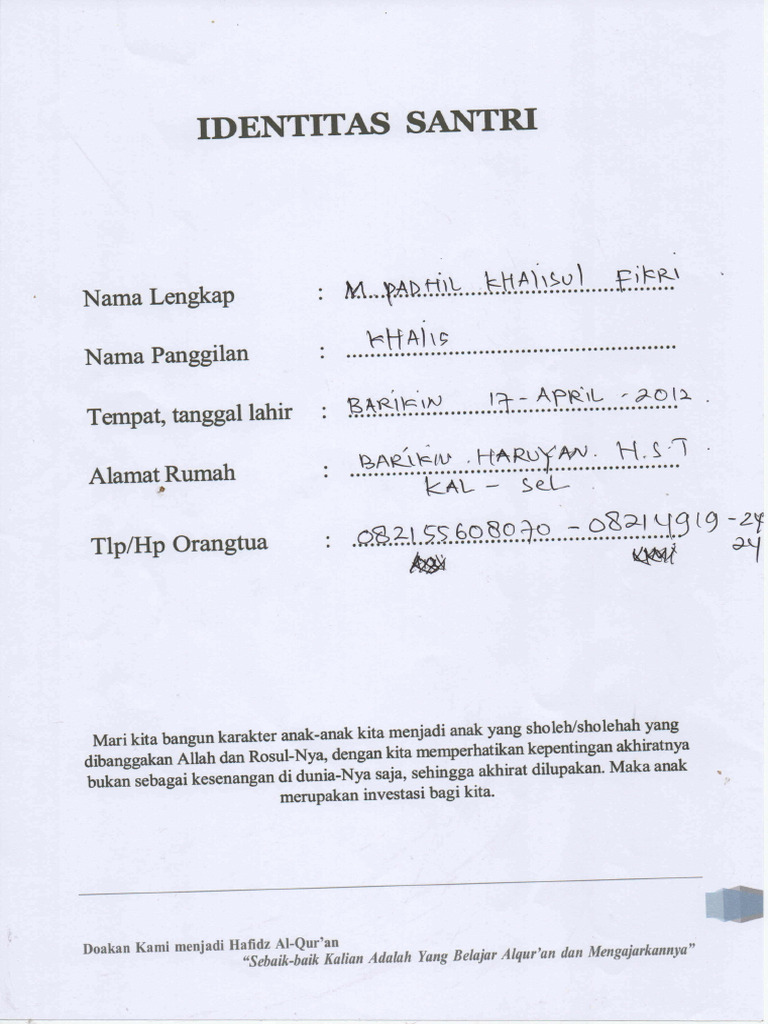 IDENTITAS SANTRI
Nama Lengkap : M. PADHIL KHALISUL FIKRI
Nama Panggilan : KHALIS
Tempat, tanggal lahir : BARIKIN 17 - APRIL - 2012.
Alamat Rumah : BARIKIN. HARUYAN. H.S.T.
KAL - SEL
Tlp/Hp Orangtua : 082155608070 - 08214919 - 24
24
Mari kita bangun karakter anak-anak kita menjadi anak yang sholeh/sholehah yang
dibanggakan Allah dan Rosul-Nya, dengan kita memperhatikan kepentingan akhiratnya
bukan sebagai kesenangan di dunia-Nya saja, sehingga akhirat dilupakan. Maka anak
merupakan investasi bagi kita.
Doakan Kami menjadi Hafidz Al-Qur'an
"Sebaik-baik Kalian Adalah Yang Belajar Alqur'an dan Mengajarkannya"